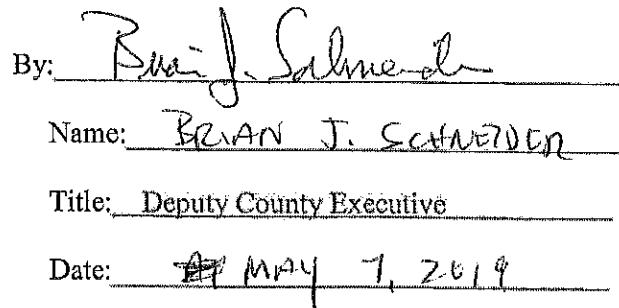 By: Brian J. Schneider
Name: BRIAN J. SCHNEIDER
Title: Deputy County Executive
Date: MAY 7, 2019